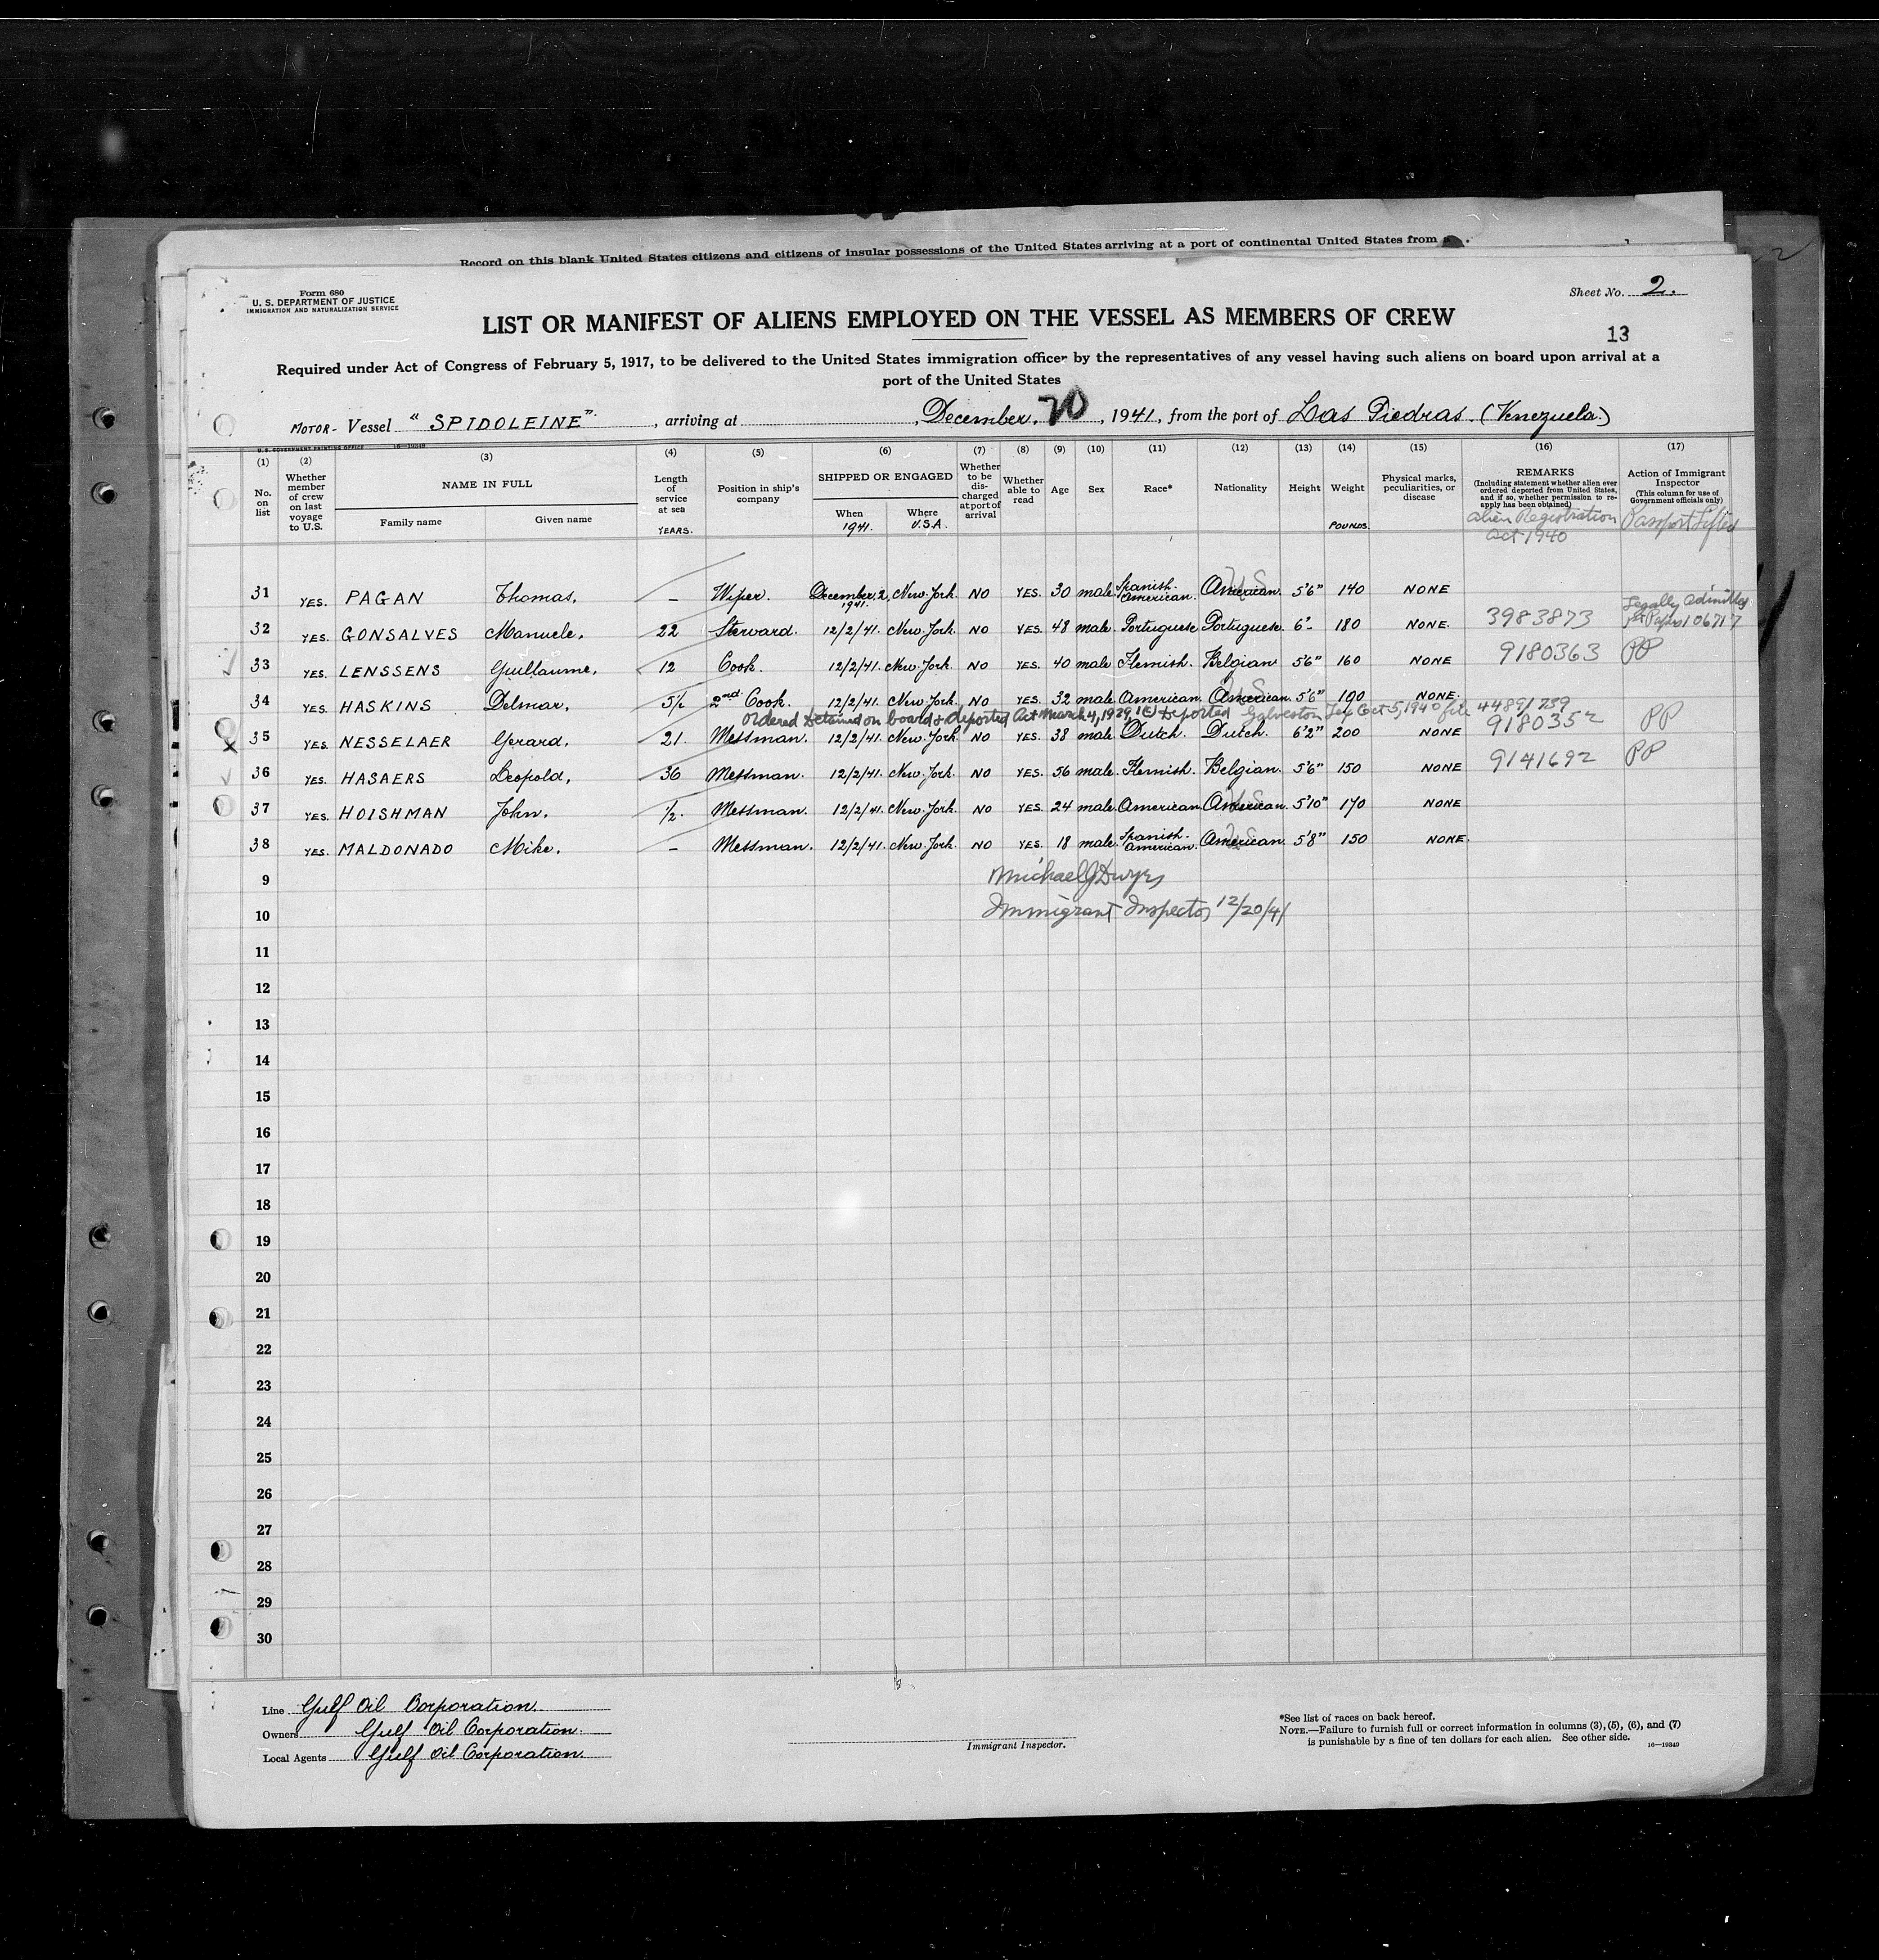 Record on this blank United States citizens and citizens of insular possessions of the United States arriving at a port of continental United States from
Form 680
U. S. DEPARTMENT OF JUSTICE
IMMIGRATION AND NATURALIZATION SERVICE
Sheet No. 2.
LIST OR MANIFEST OF ALIENS EMPLOYED ON THE VESSEL AS MEMBERS OF CREW
13
Required under Act of Congress of February 5, 1917, to be delivered to the United States immigration officer by the representatives of any vessel having such aliens on board upon arrival at a
port of the United States
MOTOR- Vessel "SPIDOLEINE", arriving at , December, 20, 1941, from the port of Las Piedras. (Venezuela.)
U.S. GOVERNMENT PRINTING OFFICE 16—19349
(1) (2) (3) (4) (5) (6) (7) (8) (9) (10) (11) (12) (13) (14) (15) (16) (17)
No. on list
Whether member of crew on last voyage to U.S.
NAME IN FULL
Family name
Given name
Length of service at sea
YEARS.
Position in ship's company
SHIPPED OR ENGAGED
When
1941.
Where
U.S.A.
Whether to be discharged at port of arrival
Whether able to read
Age
Sex
Race*
Nationality
Height
Weight
POUNDS.
Physical marks, peculiarities, or disease
REMARKS
(Including statement whether alien ever ordered deported from United States, and if so, whether permission to reapply has been obtained)
Alien Registration
Act 1940
Action of Immigrant Inspector
(This column for use of Government officials only)
Passport Lifted
31 YES. PAGAN Thomas, — Wiper. December, 2, 1941. New-York. NO YES. 30 male Spanish-American. American. US 5'6" 140 NONE
32 YES. GONSALVES Manuele, 22 Steward. 12/2/41. New-York. NO YES. 48 male. Portuguese Portuguese. 6'- 180 NONE. 3983873 Legally admitted 1st Papers 106717
33 YES. LENSSENS Guillaume, 12 Cook. 12/2/41. New-York. NO YES. 40 male Flemish. Belgian 5'6" 160 NONE 9180363 PP
34 YES. HASKINS Delmar, 5½ 2nd Cook. 12/2/41. New-York. NO YES. 32 male American. American. US 5'6" 190 NONE.
Ordered Detained on board & deported Act March 4, 1929, 1(E) Deported Galveston Tex Oct 5, 1940 file 4489/759
35 YES. NESSELAER Gerard, 21. Messman. 12/2/41. New-York. NO YES. 38 male Dutch. Dutch. 6'2" 200 NONE 9180352 PP
36 YES. HASAERS Leopold, 36 Messman. 12/2/41. New-York. NO YES. 56 male. Flemish. Belgian. 5'6" 150 NONE 9141692 PP
37 YES. HOISHMAN John, ½. Messman. 12/2/41. New-York. NO YES. 24 male American American. US 5'10" 170 NONE
38 YES. MALDONADO Mike, — Messman. 12/2/41. New-York. NO YES. 18 male Spanish-American. American. US 5'8" 150 NONE.
9 Michael J Dwyer
10 Immigrant Inspector 12/20/41
11
12
13
14
15
16
17
18
19
20
21
22
23
24
25
26
27
28
29
30
Line Gulf Oil Corporation.
Owners Gulf Oil Corporation.
Local Agents Gulf Oil Corporation.
Immigrant Inspector.
*See list of races on back hereof.
NOTE.—Failure to furnish full or correct information in columns (3), (5), (6), and (7)
is punishable by a fine of ten dollars for each alien. See other side.
16—19349